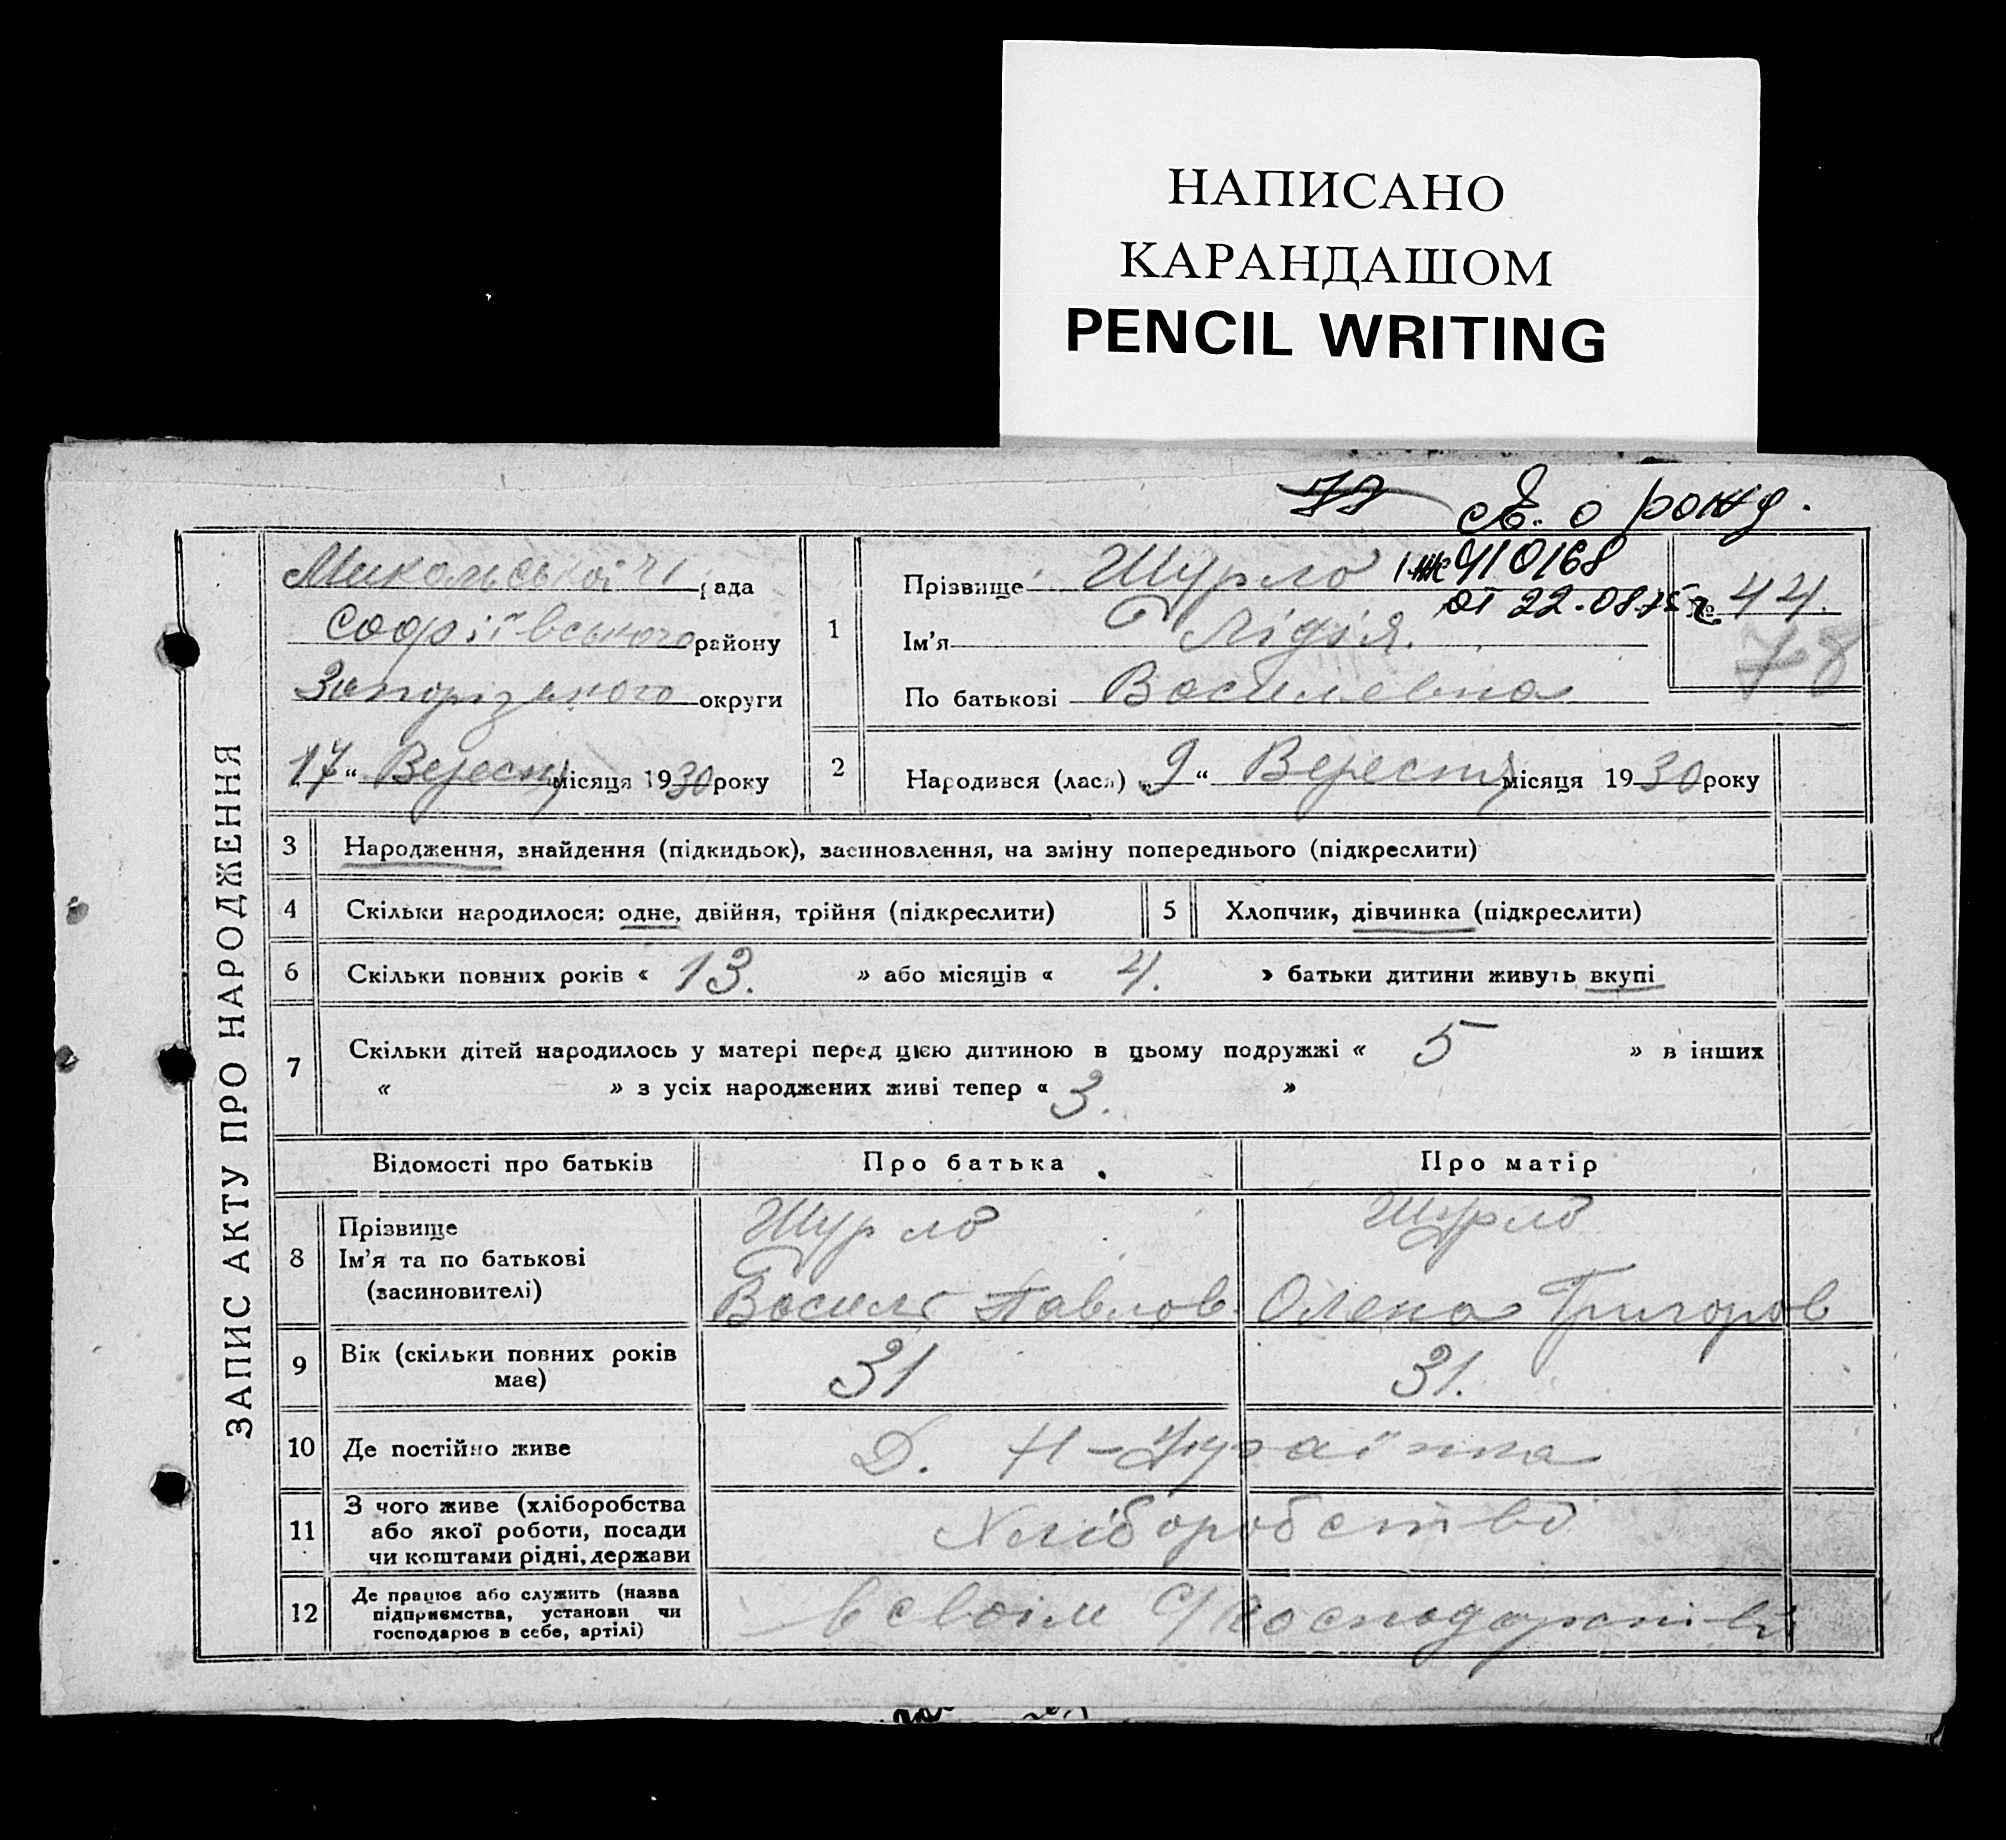 НАПИСАНО
КАРАНДАШОМ
PENCIL WRITING
77 св. о рожд.
ЗАПИС АКТУ ПРО НАРОДЖЕННЯ
Микольської рада
Софіївського району
Запорізького округи
17 “ Вересня місяця 1930 року
1
Прізвище Щурло І ЖС 410168
от 22.08.75 г. № 44.
78
Ім’я Лідія.
По батькові Василевна
2 Народився (лася) „ 9 “ Вересня місяця 1930 року
3 Народження, знайдення (підкидьок), засиновлення, на зміну попереднього (підкреслити)
4 Скільки народилося: одне, двійня, трійня (підкреслити) 5 Хлопчик, дівчинка (підкреслити)
6 Скільки повних років « 13. » або місяців « 4. » батьки дитини живуть вкупі
7 Скільки дітей народилось у матері перед цією дитиною в цьому подружжі « 5 » в інших
« » з усіх народжених живі тепер « 3. »
Відомості про батьків Про батька Про матір
8 Прізвище Щурло Щурло
Ім’я та по батькові
(засиновителі) Василь Павлов Олена Григоров
9 Вік (скільки повних років
має) 31 31.
10 Де постійно живе Д. Н-Українка
11 З чого живе (хліборобства
або якої роботи, посади
чи коштами рідні, держави Хліборобство
12 Де працює або служить (назва
підприємства, установи чи
господарює в себе, артілі) в своїм с/господарстві